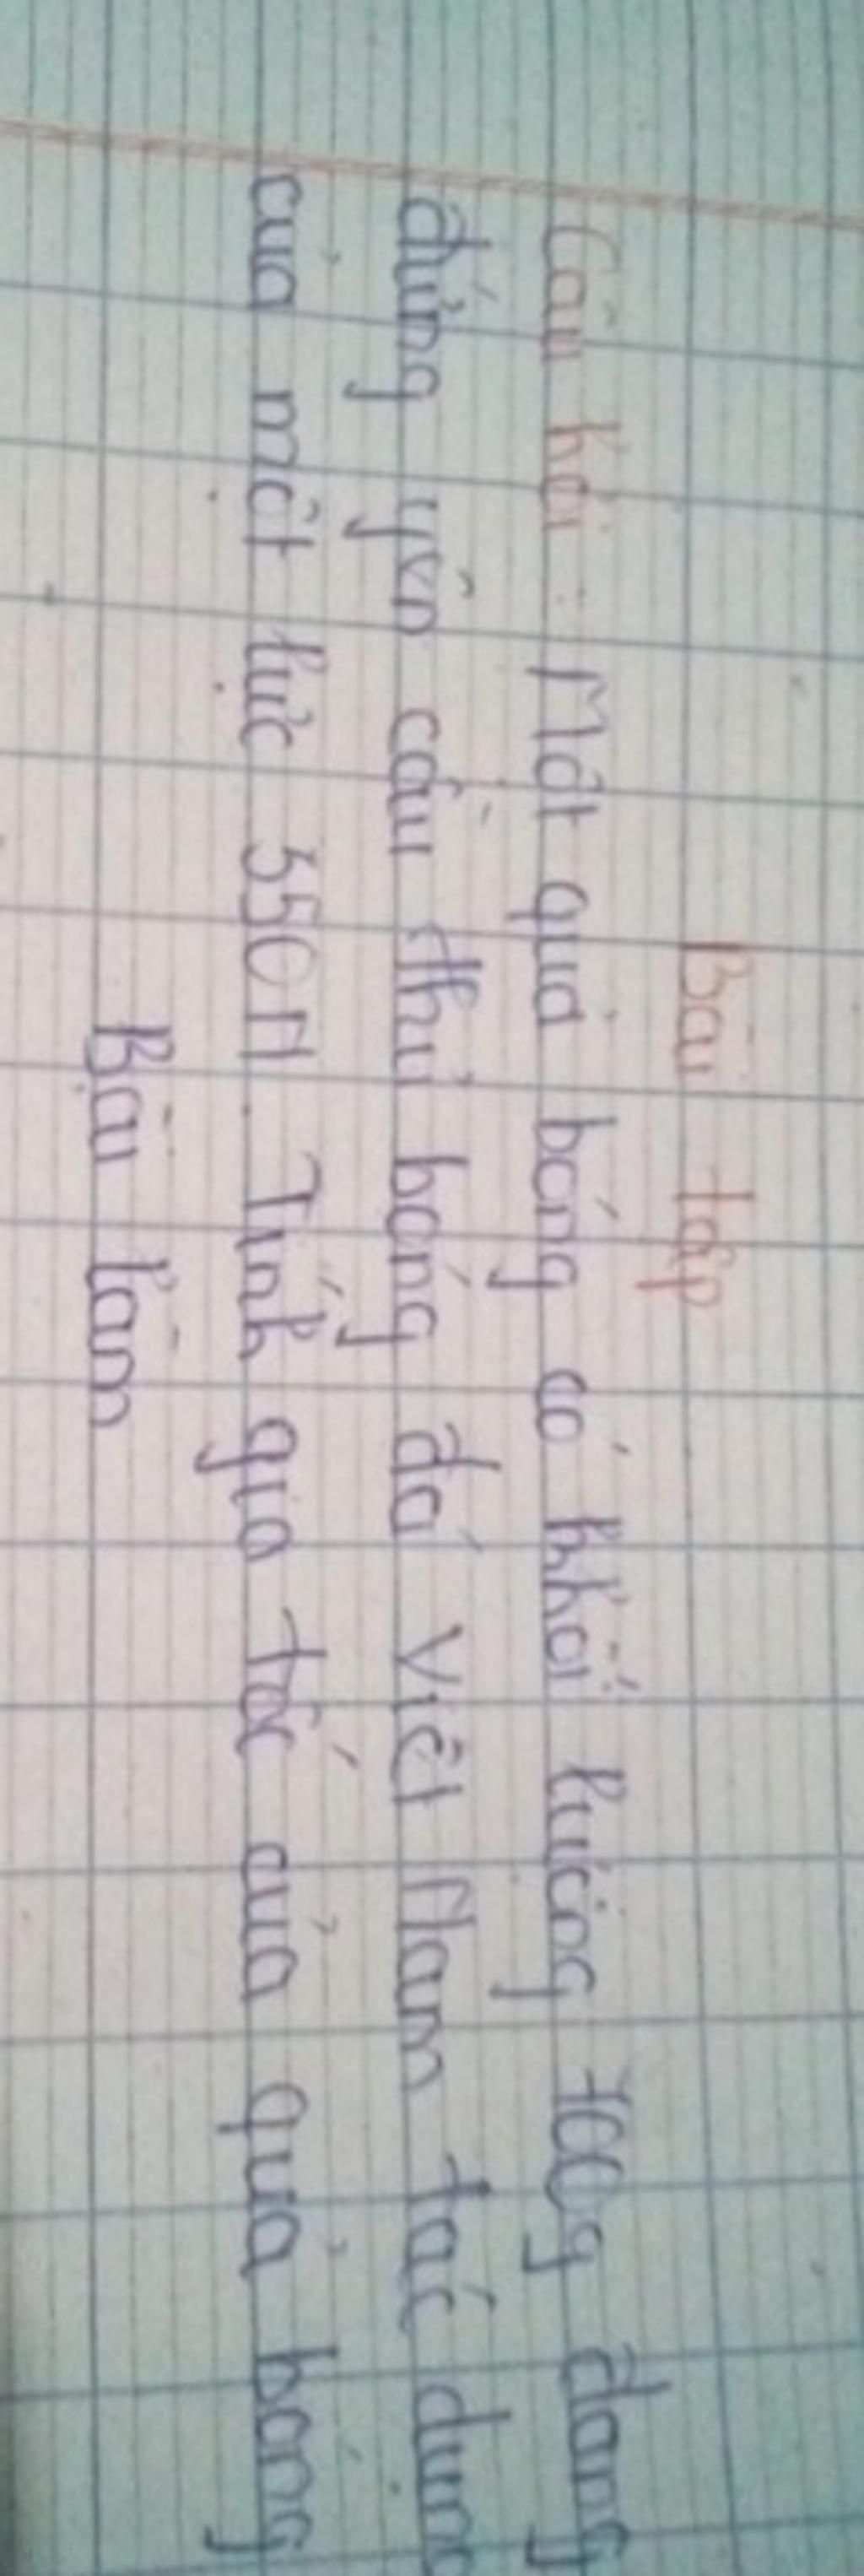 Bài tập
Câu hỏi : Một quả bóng có khối lượng 700g đang
đứng yên cầu thủ bóng đá Việt Nam tác dụng
của một lực 350N. Tính gia tốc của quả bóng
Bài làm